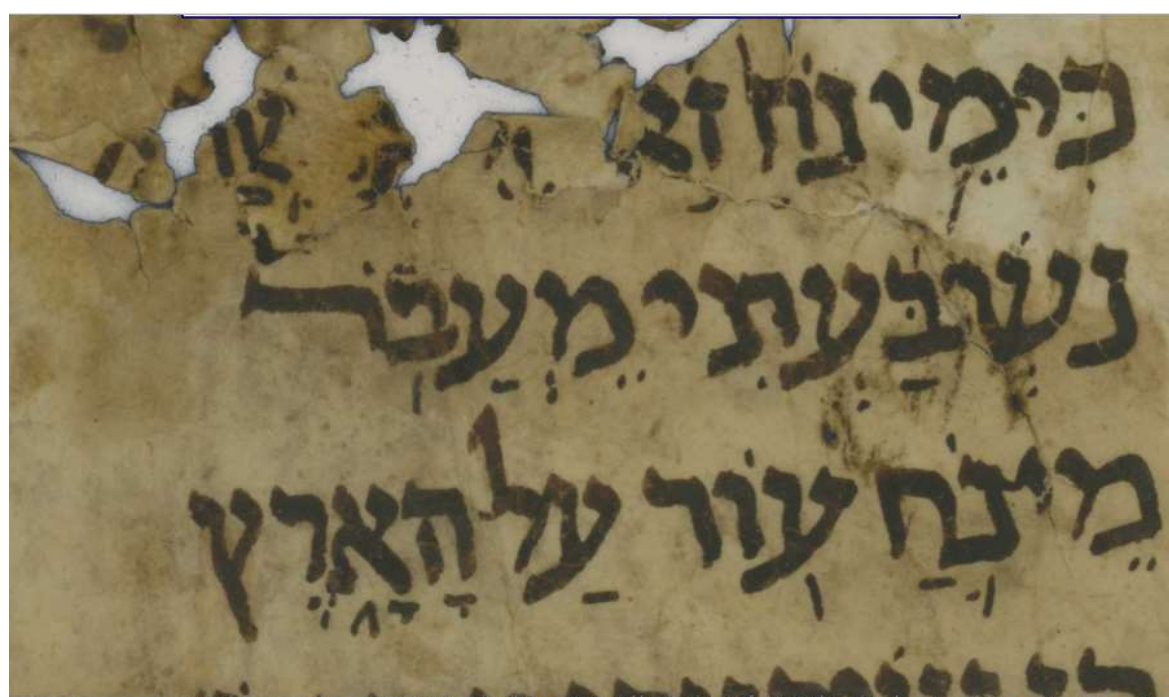 כִּימֵי נֹחַ
נִשְׁבַּעְתִּי מֵעֲבֹר
מֵי נֹחַ עוֹד עַל הָאָרֶץ